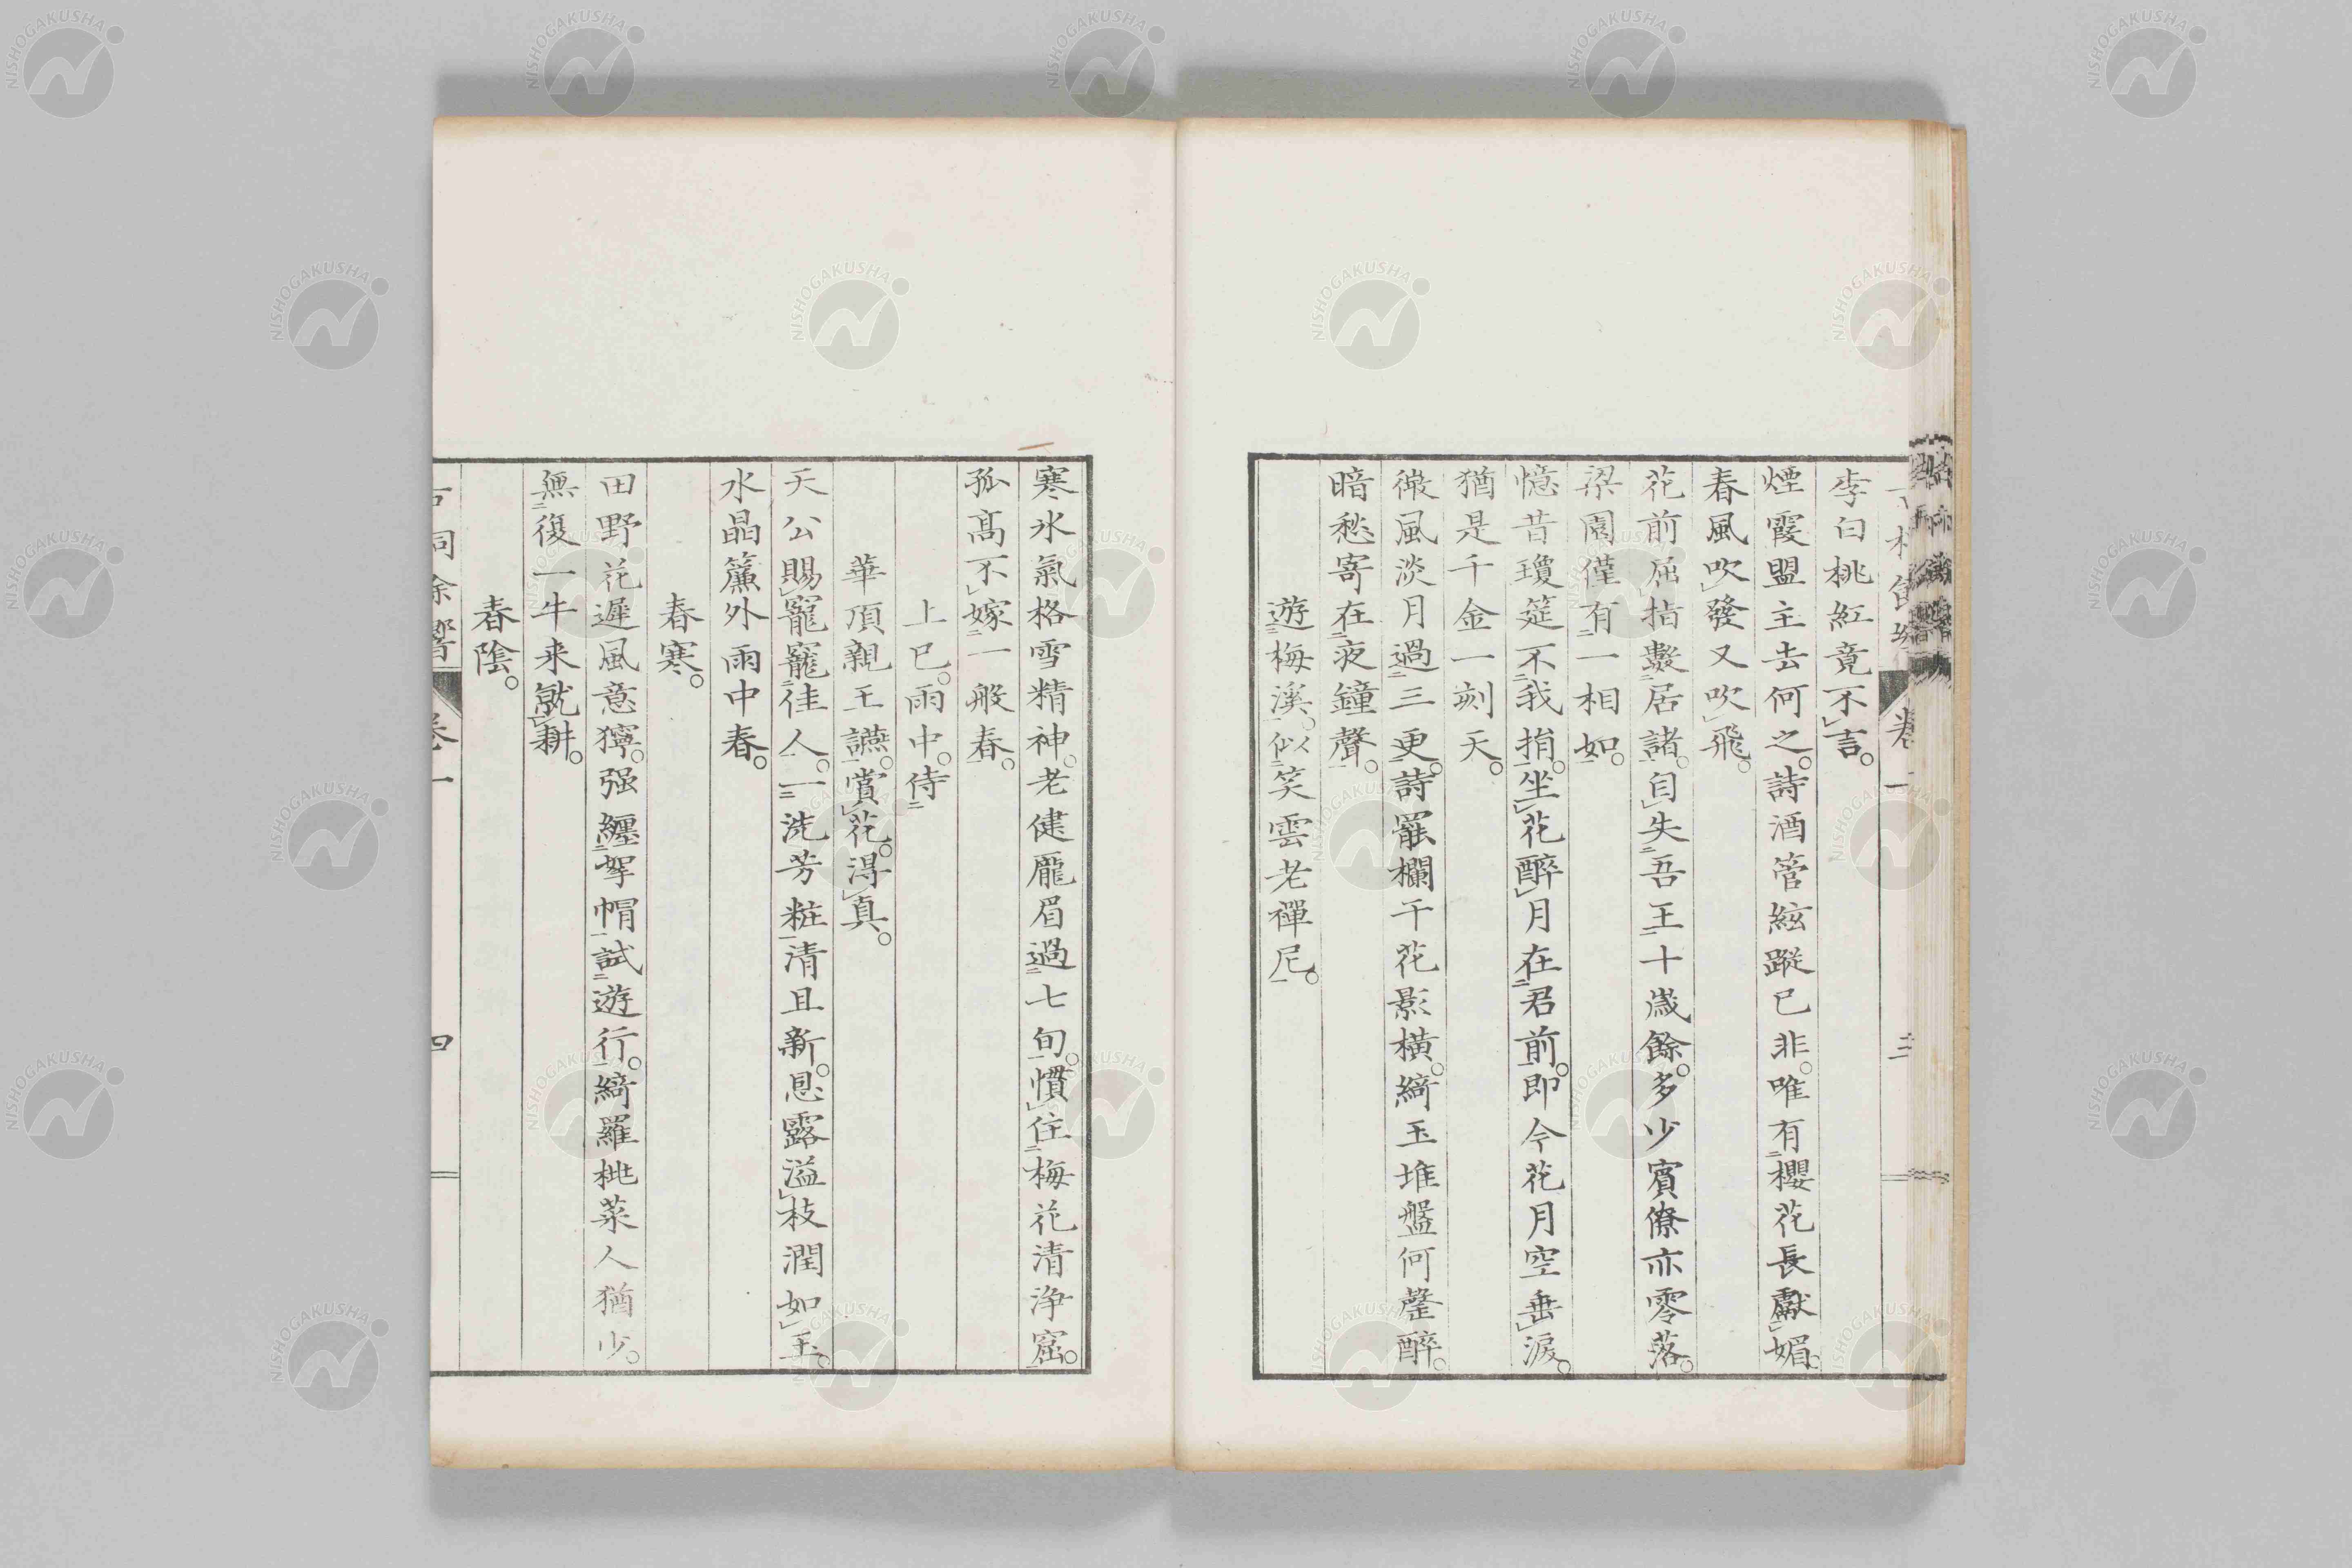 李白桃紅竟不言。
煙霞盟主去何之。詩酒管絃蹤已非。唯有櫻花長獻媚。
春風吹發又吹飛。
花前屈指數居諸。自失吾王十歲餘。多少賓僚亦零落。
梁園僅有一相如。
憶昔瓊筵不我捐。坐花醉月在君前。即今花月空垂淚。
猶是千金一刻天。
微風淡月過三更。詩罷欄干花影橫。綺玉堆盤何釐醉。
暗愁寄在夜鐘聲。
遊梅溪。似笑雲老禪尼。
卷一
三
寒氷氣格雪精神。老健龐眉過七旬。慣住梅花清浄窟。
孤高不嫁一般春。
上巳。雨中。侍
華頂親王讌。賞花。得真。
天公賜寵寵佳人。一洗芳粧清且新。恩露溢枝潤如玉。
水晶簾外雨中春。
春寒。
田野花遲風意獰。强纏挐帽試遊行。綺羅桃菜人猶少。
無復一牛来就耕。
春陰。
卷一
四
NISHOGAKUSHA